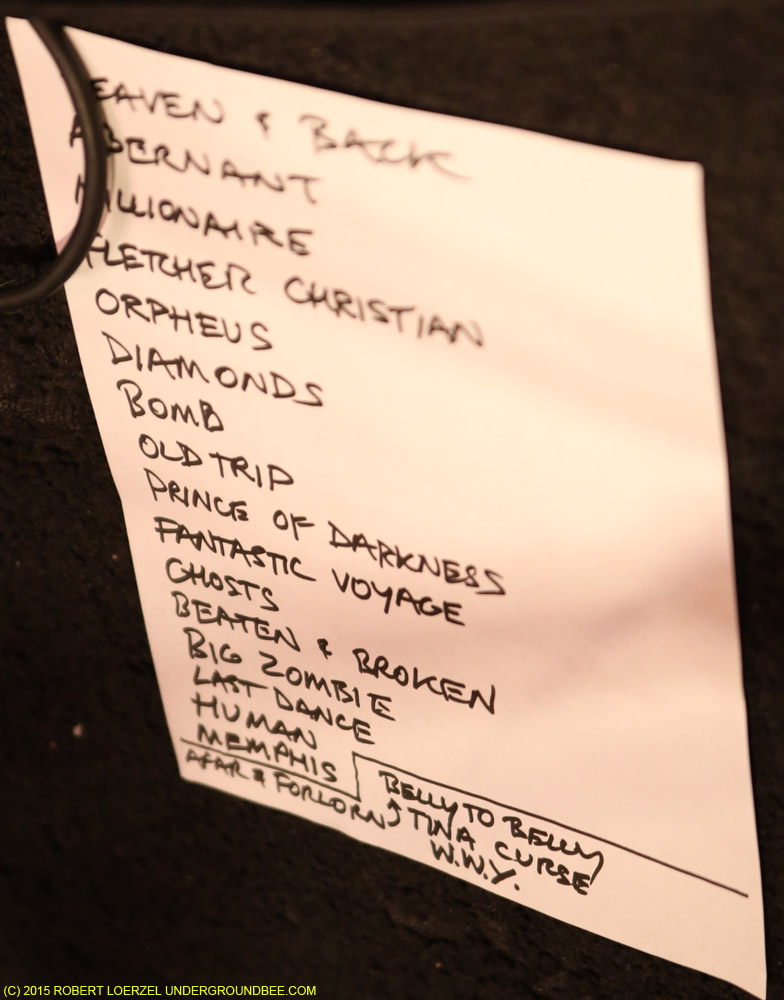 EAVEN & BACK
ABERNANT
MILLIONAIRE
FLETCHER CHRISTIAN
ORPHEUS
DIAMONDS
BOMB
OLD TRIP
PRINCE OF DARKNESS
FANTASTIC VOYAGE
GHOSTS
BEATEN & BROKEN
BIG ZOMBIE
LAST DANCE
HUMAN
MEMPHIS
AFAR & FORLORN
BELLY TO BELLY
TINA CURSE
W.W.Y.
(C) 2015 ROBERT LOERZEL UNDERGROUNDBEE.COM